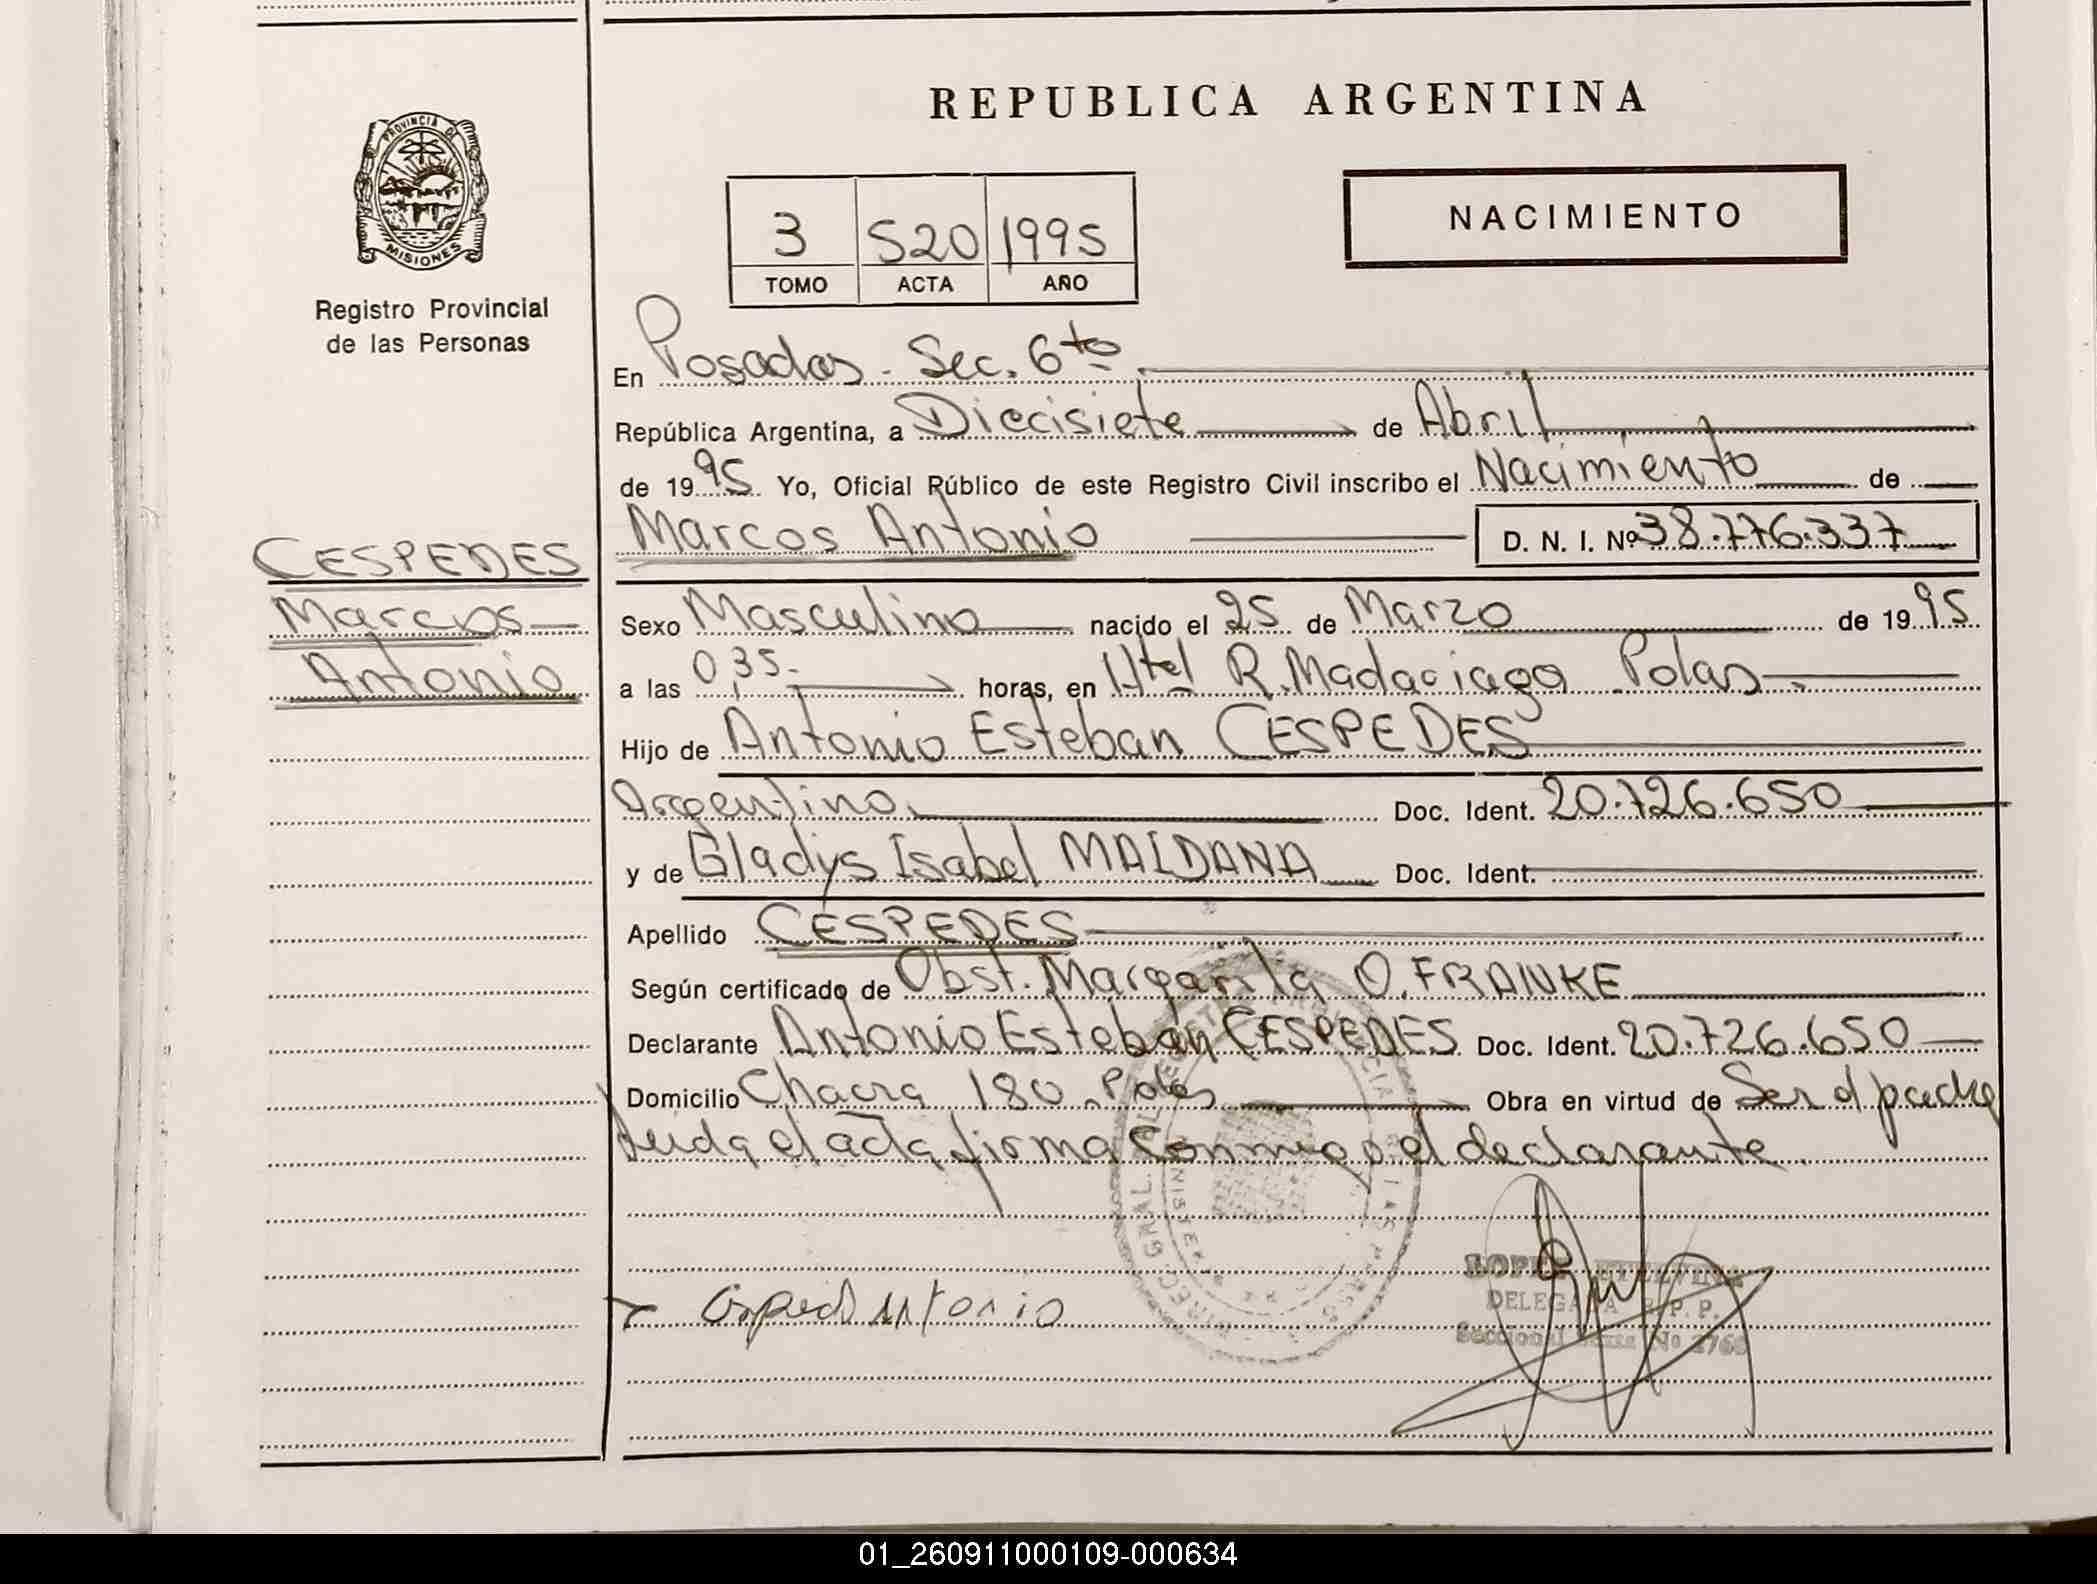 REPUBLICA ARGENTINA
PROVINCIA DE
MISIONES
Registro Provincial
de las Personas
3 520 1995
TOMO ACTA AÑO
NACIMIENTO
En Posadas. Sec. 6to
República Argentina, a Diecisiete de Abril
de 1995 Yo, Oficial Público de este Registro Civil inscribo el Nacimiento de
CESPEDES
Marcos
Antonio
Marcos Antonio D. N. I. Nº 38.776.337
Sexo Masculino nacido el 25 de Marzo de 1995
a las 0,35.- horas, en Htel R. Madariaga Pdas
Hijo de Antonio Esteban CESPEDES
Argentino Doc. Ident. 20.726.650
y de Gladys Isabel MALDANA Doc. Ident.
Apellido CESPEDES
Según certificado de Obst. Margarita O. FRANKE
Declarante Antonio Esteban CESPEDES Doc. Ident. 20.726.650
Domicilio Chacra 180. Pdas Obra en virtud de Ser el padre
Leida el acta firma conmigo el declarante
Antonio
DELEGADA R.P.P.
Seccional Nº
01_260911000109-000634